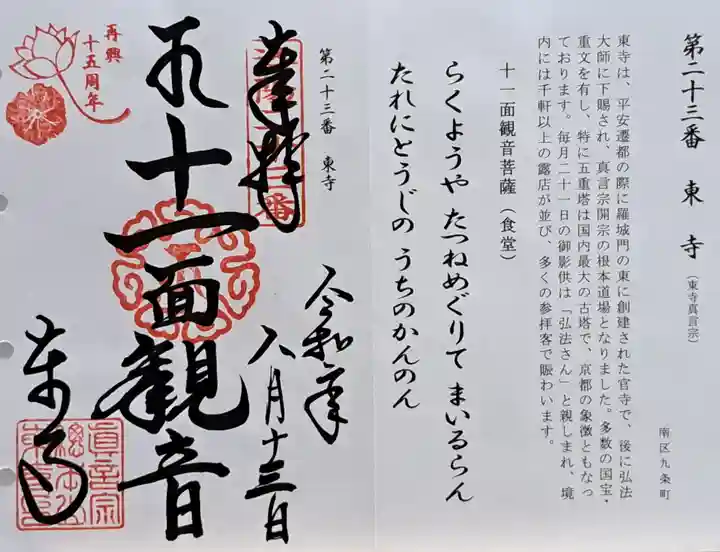 第二十三番　東　寺　（東寺真言宗）
南区九条町
東寺は、平安遷都の際に羅城門の東に創建された官寺で、後に弘法
大師に下賜され、真言宗開宗の根本道場となりました。多数の国宝・
重文を有し、特に五重塔は国内最大の古塔で、京都の象徴ともなっ
ております。毎月二十一日の御影供は「弘法さん」と親しまれ、境
内には千軒以上の露店が並び、多くの参拝客で賑わいます。
十一面観音菩薩（食堂）
らくようや　たつねめぐりて　まいるらん
たれにとうじの　うちのかんのん
第二十三番　東寺
奉拝
令和元年
八月十三日
十一面観音
東寺
再興
十五周年